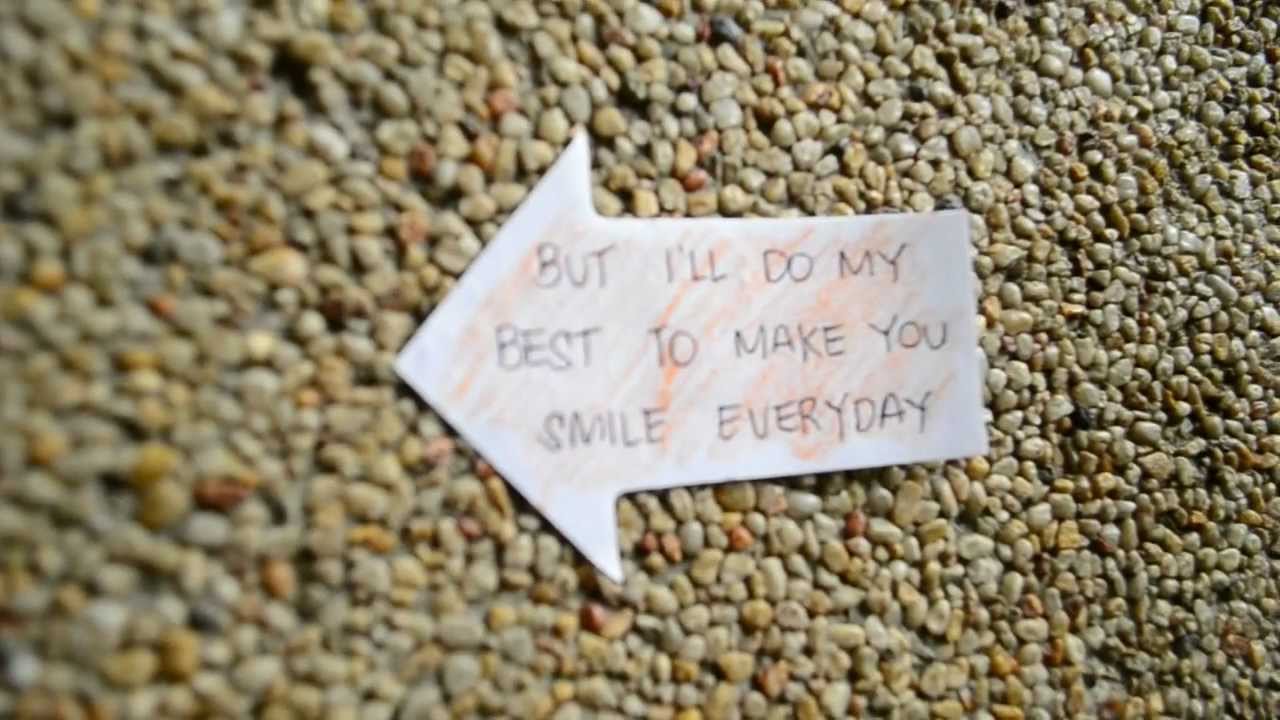 BUT I'LL DO MY
BEST TO MAKE YOU
SMILE EVERYDAY